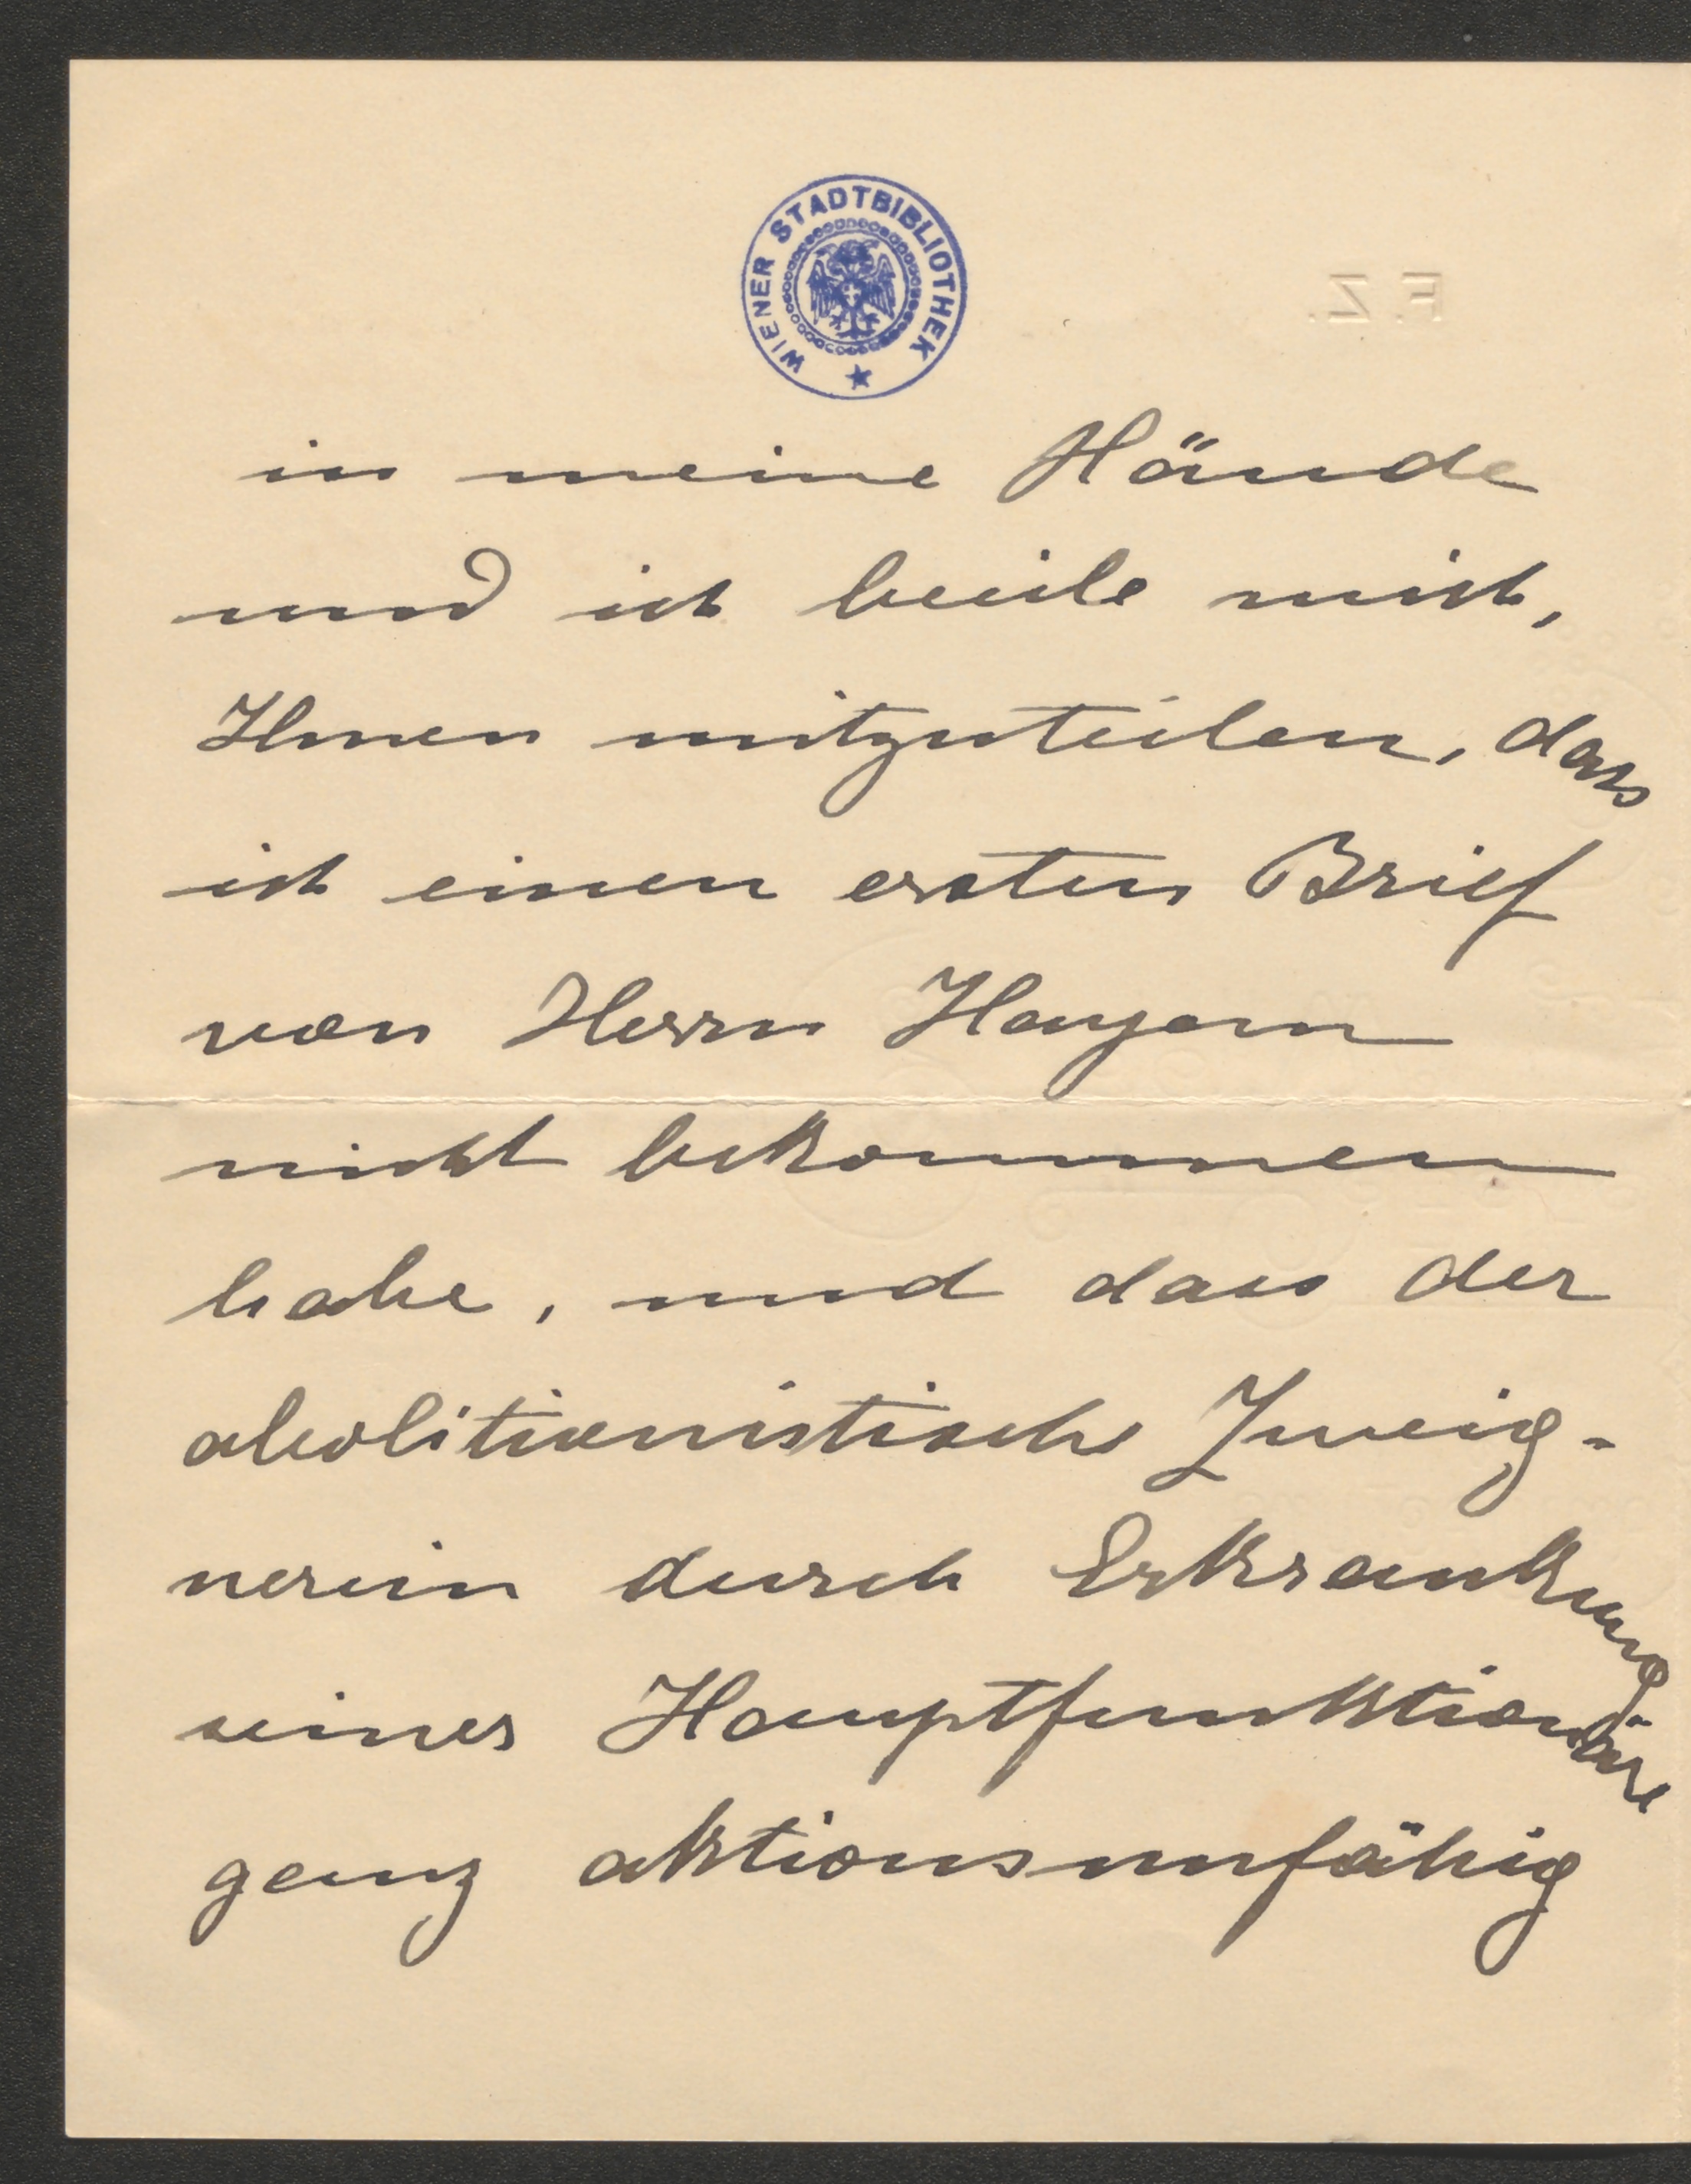 WIENER STADTBIBLIOTHEK
F. Z.
in meine Hände
und ich beeile mich,
Ihnen mitzuteilen, dass
ich einen ersten Brief
von Herrn Hayem
nicht bekommen
habe, und dass der
abolitionistische Zweig-
verein durch Erkrankung
seiner Hauptfunktionäre
ganz aktionsunfähig